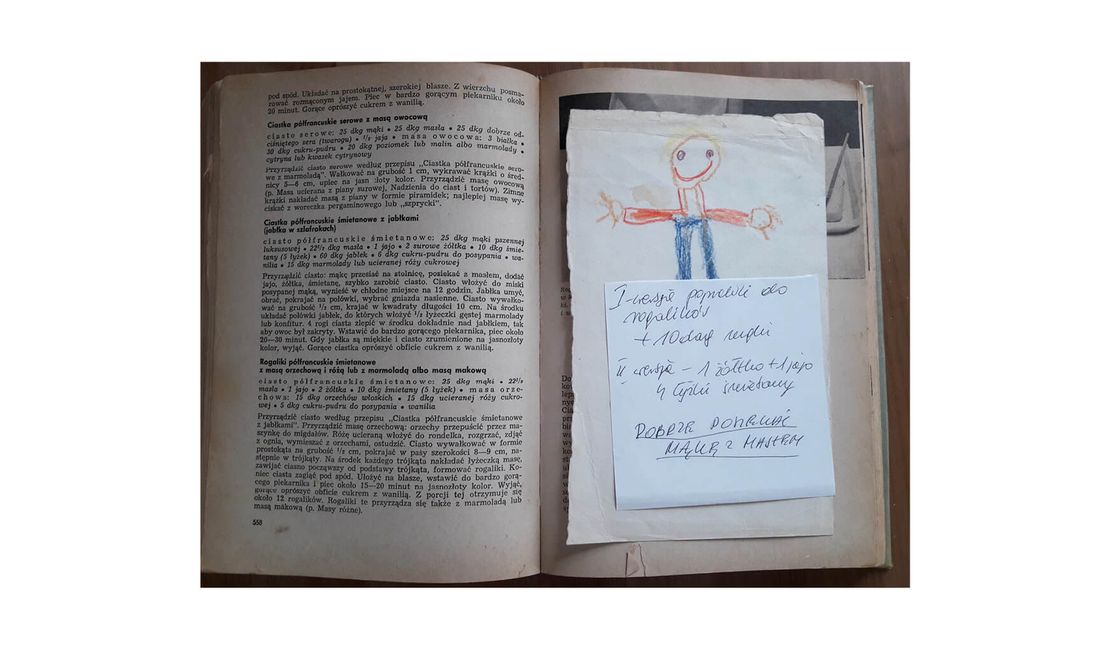 pod spód. Układać na prostokątnej, szerokiej blasze. Z wierzchu posma-
rować rozmąconym jajem. Piec w bardzo gorącym piekarniku około
20 minut. Gorące oprószyć cukrem z wanilią.
Ciastka półfrancuskie serowe z masą owocową
ciasto serowe: 25 dkg mąki • 25 dkg masła • 25 dkg dobrze od-
ciśniętego sera (twarogu) • ¹/₂ jaja • masa owocowa: 3 białka •
30 dkg cukru-pudru • 20 dkg poziomek lub malin albo marmolady •
cytryna lub kwasek cytrynowy
Przyrządzić ciasto serowe według przepisu „Ciastka półfrancuskie sero-
we z marmoladą". Wałkować na grubość 1 cm, wykrawać krążki o śred-
nicy 5—6 cm, upiec na jasnozłoty kolor. Przyrządzić masę owocową
(p. Masa ucierana z piany surowej, Nadzienia do ciast i tortów). Zimne
krążki nakładać masą z piany w formie piramidek; najlepiej masę wy-
ciskać z woreczka pergaminowego lub „szprycki".
Ciastka półfrancuskie śmietanowe z jabłkami
(jabłka w szlafrokach)
ciasto półfrancuskie śmietanowe: 25 dkg mąki pszennej
luksusowej • 22¹/₂ dkg masła • 1 jajo • 2 surowe żółtka • 10 dkg śmie-
tany (5 łyżek) • 60 dkg jabłek • 6 dkg cukru-pudru do posypania • wa-
nilia • 15 dkg marmolady lub ucieranej róży cukrowej
Przyrządzić ciasto: mąkę przesiać na stolnicę, posiekać z masłem, dodać
jajo, żółtka, śmietanę, szybko zarobić ciasto. Ciasto włożyć do miski
posypanej mąką, wynieść w chłodne miejsce na 12 godzin. Jabłka umyć,
obrać, pokrajać na połówki, wybrać gniazda nasienne. Ciasto wywałko-
wać na grubość ¹/₂ cm, krajać w kwadraty długości 10 cm. Na środku
układać połówki jabłek, do których włożyć ¹/₂ łyżeczki gęstej marmolady
lub konfitur. 4 rogi ciasta zlepić w środku dokładnie nad jabłkiem, tak
aby owoc był zakryty. Wstawić do bardzo gorącego piekarnika, piec około
20—30 minut. Gdy jabłka są miękkie i ciasto zrumienione na jasnozłoty
kolor, wyjąć. Gorące ciastka oprószyć obficie cukrem z wanilią.
Rogaliki półfrancuskie śmietanowe
z masą orzechową i różą lub z marmoladą albo masą makową
ciasto półfrancuskie śmietanowe: 25 dkg mąki • 22¹/₂
masła • 1 jajo • 2 żółtka • 10 dkg śmietany (5 łyżek) • masa orze-
chowa: 15 dkg orzechów włoskich • 15 dkg ucieranej róży cukro-
wej • 5 dkg cukru-pudru do posypania • wanilia
Przyrządzić ciasto według przepisu „Ciastka półfrancuskie śmietanowe
z jabłkami". Przyrządzić masę orzechową: orzechy przepuścić przez ma-
szynkę do migdałów. Różę ucieraną włożyć do rondelka, rozgrzać, zdjąć
z ognia, wymieszać z orzechami, ostudzić. Ciasto wywałkować w formie
prostokąta na grubość ¹/₂ cm, pokrajać w pasy szerokości 8—9 cm, na-
stępnie w trójkąty. Na środek każdego trójkąta nakładać łyżeczką masę,
zawijać ciasno począwszy od podstawy trójkąta, formować rogaliki. Ko-
niec ciasta zagiąć pod spód. Ułożyć na blasze, wstawić do bardzo gorą-
cego piekarnika i piec około 15—20 minut na jasnozłoty kolor. Wyjąć,
gorące oprószyć obficie cukrem z wanilią. Z porcji tej otrzymuje się
około 12 rogalików. Rogaliki te przyrządza się także z marmoladą lub
masą makową (p. Masy różne).
558
I wersja poprawki do
rogalików
+ 10 dag mąki
II wersja – 1 żółtko + 1 jajo
4 łyżki śmietany
DOBRZE POSIEKAĆ
MĄKĘ Z MASŁEM